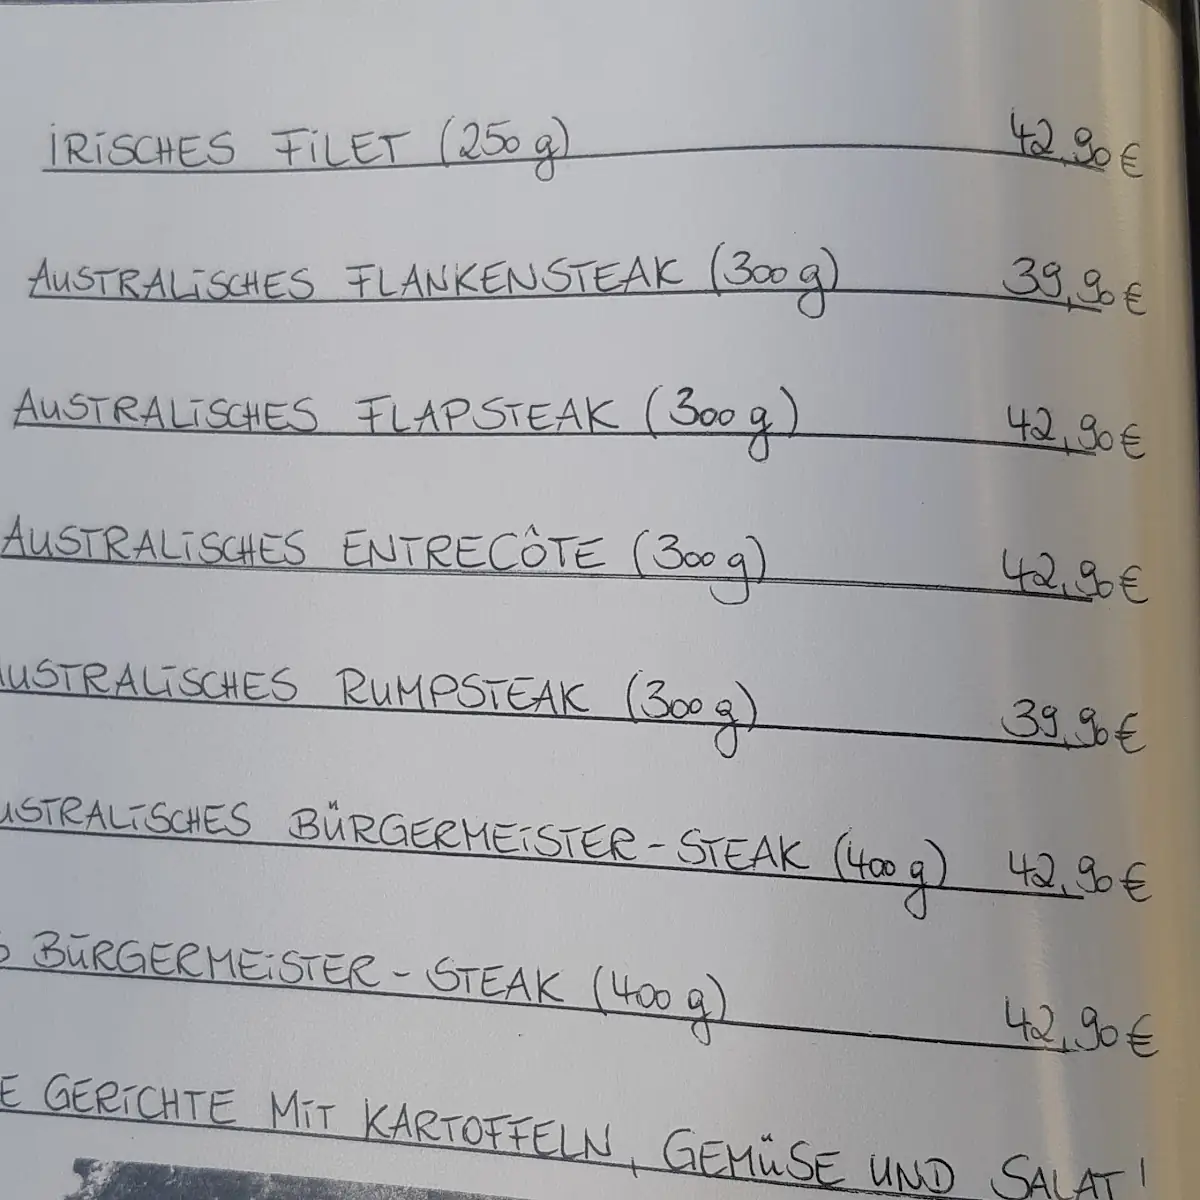 IRISCHES FILET (250 g) 42,90 €
AUSTRALISCHES FLANKENSTEAK (300 g) 39,90 €
AUSTRALISCHES FLAPSTEAK (300 g) 42,90 €
AUSTRALISCHES ENTRECÔTE (300 g) 42,90 €
AUSTRALISCHES RUMPSTEAK (300 g) 39,90 €
USTRALISCHES BÜRGERMEISTER-STEAK (400 g) 42,90 €
BÜRGERMEISTER-STEAK (400 g) 42,90 €
E GERICHTE MIT KARTOFFELN, GEMÜSE UND SALAT!